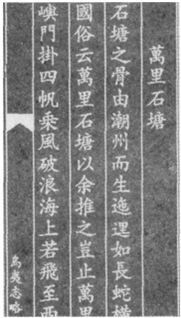 萬里石塘
石塘之骨由潮州而生迤逦如長蛇橫
國俗云萬里石塘以余推之豈止萬里
嶼門掛四帆乘風破浪海上若飛至西
島夷志略